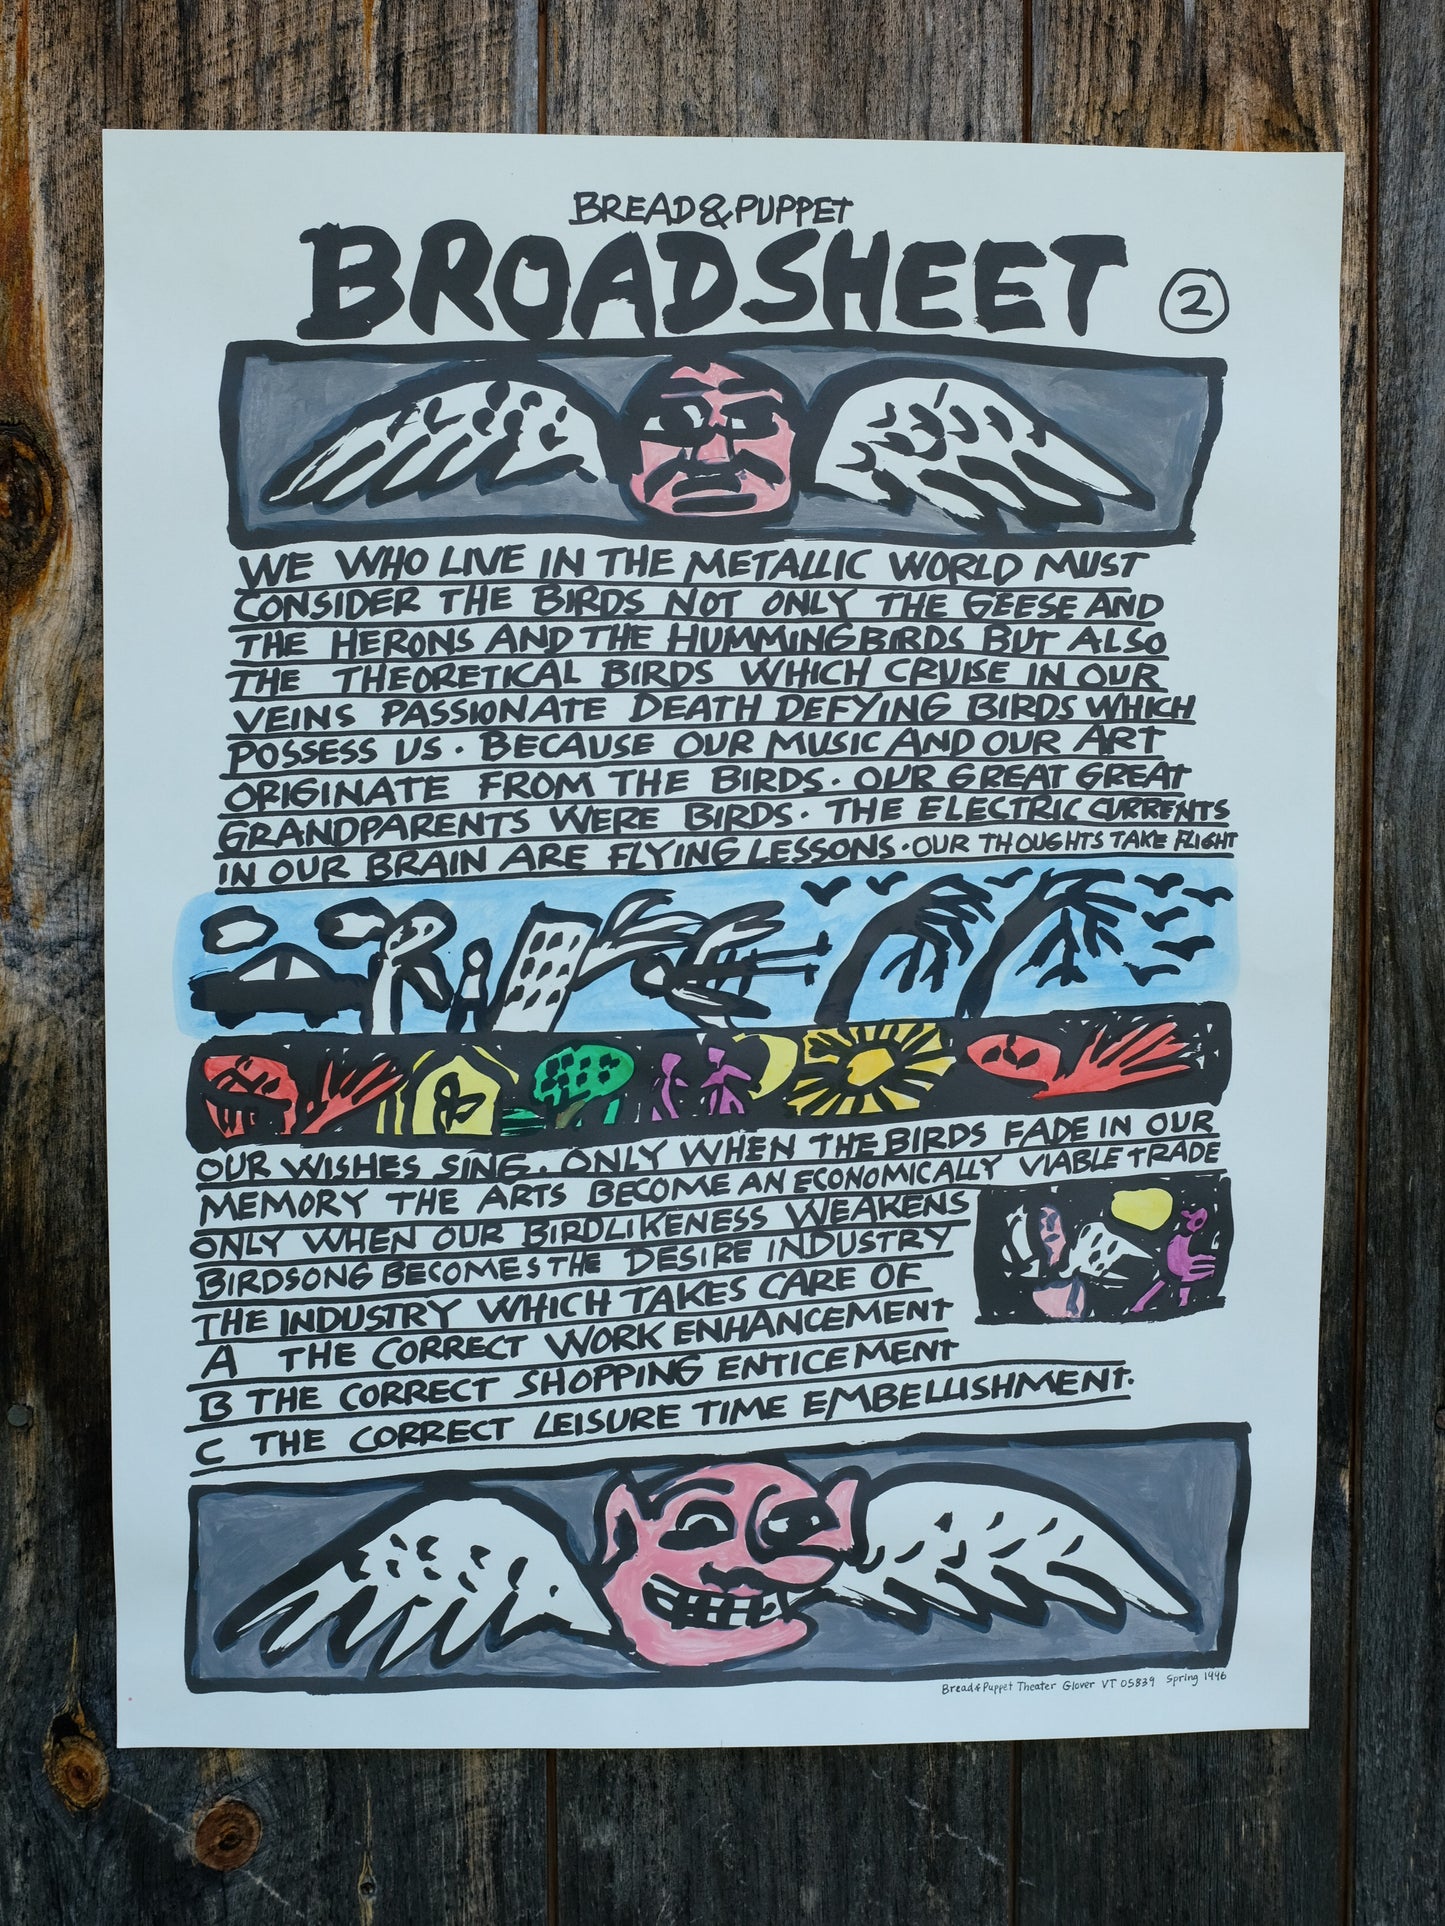 BREAD & PUPPET
BROADSHEET 2
WE WHO LIVE IN THE METALLIC WORLD MUST
CONSIDER THE BIRDS NOT ONLY THE GEESE AND
THE HERONS AND THE HUMMINGBIRDS BUT ALSO
THE THEORETICAL BIRDS WHICH CRUISE IN OUR
VEINS PASSIONATE DEATH DEFYING BIRDS WHICH
POSSESS US. BECAUSE OUR MUSIC AND OUR ART
ORIGINATE FROM THE BIRDS. OUR GREAT GREAT
GRANDPARENTS WERE BIRDS. THE ELECTRIC CURRENTS
IN OUR BRAIN ARE FLYING LESSONS. OUR THOUGHTS TAKE FLIGHT
OUR WISHES SING. ONLY WHEN THE BIRDS FADE IN OUR
MEMORY THE ARTS BECOME AN ECONOMICALLY VIABLE TRADE
ONLY WHEN OUR BIRDLIKENESS WEAKENS
BIRDSONG BECOMES THE DESIRE INDUSTRY
THE INDUSTRY WHICH TAKES CARE OF
A THE CORRECT WORK ENHANCEMENT
B THE CORRECT SHOPPING ENTICEMENT
C THE CORRECT LEISURE TIME EMBELLISHMENT.
Bread & Puppet Theater Glover VT 05839 Spring 1996